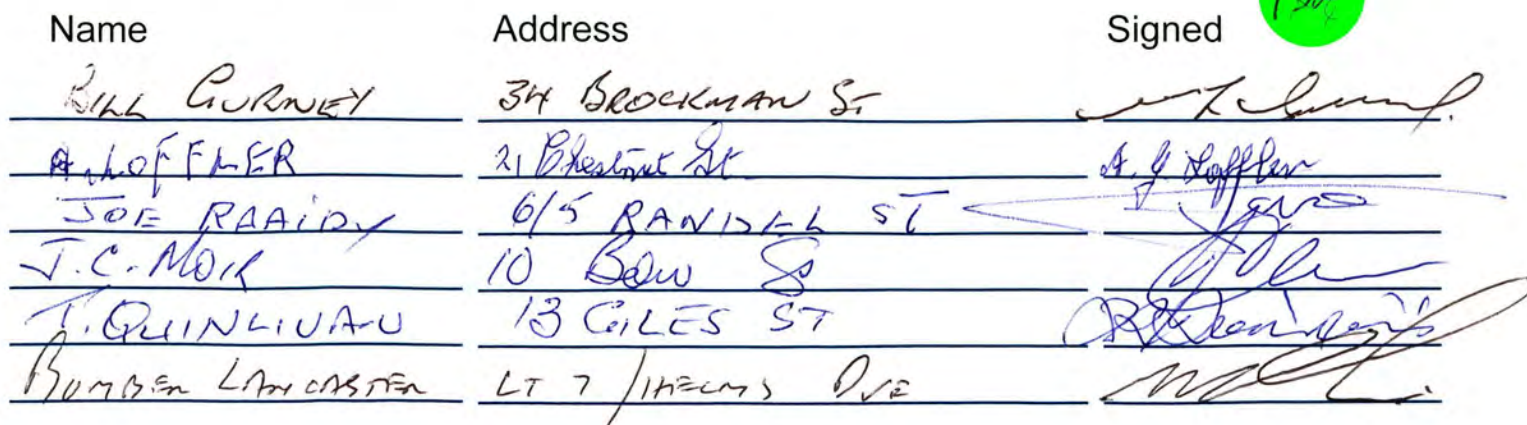 Name Address Signed
BILL GURNEY 34 BROCKMAN ST
A. LOFFLER 21 Chestnut St. A. J. Loffler
JOE RAAIDY 6/5 RANDELL ST
J.C. MOIR 10 Bow St
T. QUINLIVAN 13 GILES ST
BOMBER LANCASTER LT 7 DVE